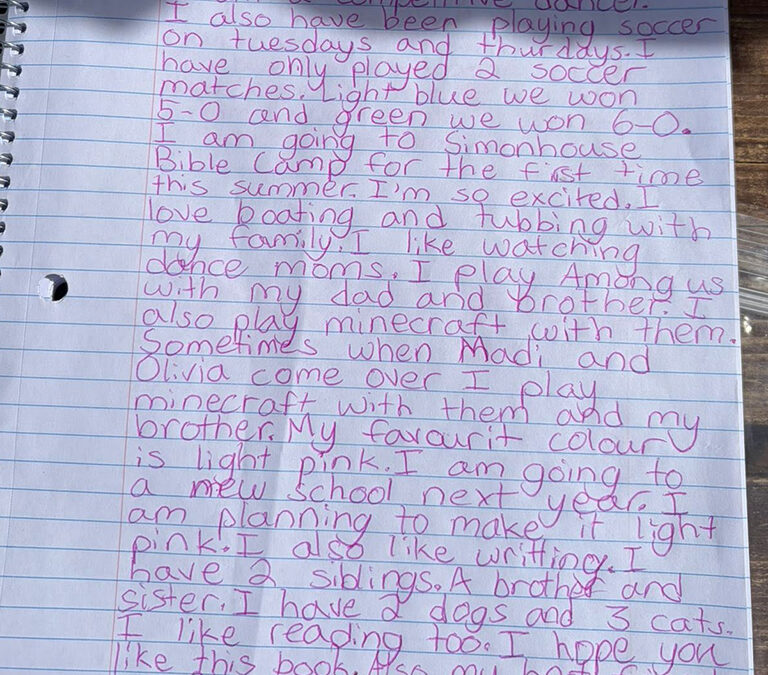 a competitive dancer.
I also have been playing soccer
on tuesdays and thurdays. I
have only played 2 soccer
matches. Light blue we won
5-0 and green we won 6-0.
I am going to Simonhouse
Bible Camp for the first time
this summer. I'm so excited. I
love boating and tubbing with
my family. I like watching
dance moms. I play Among us
with my dad and brother. I
also play minecraft with them.
Sometimes when Madi and
Olivia come over I play
minecraft with them and my
brother. My favourit colour
is light pink. I am going to
a new school next year. I
am planning to make it light
pink. I also like writting. I
have 2 siblings. A brother and
sister. I have 2 dogs and 3 cats.
I like reading too. I hope you
like this book. Also my